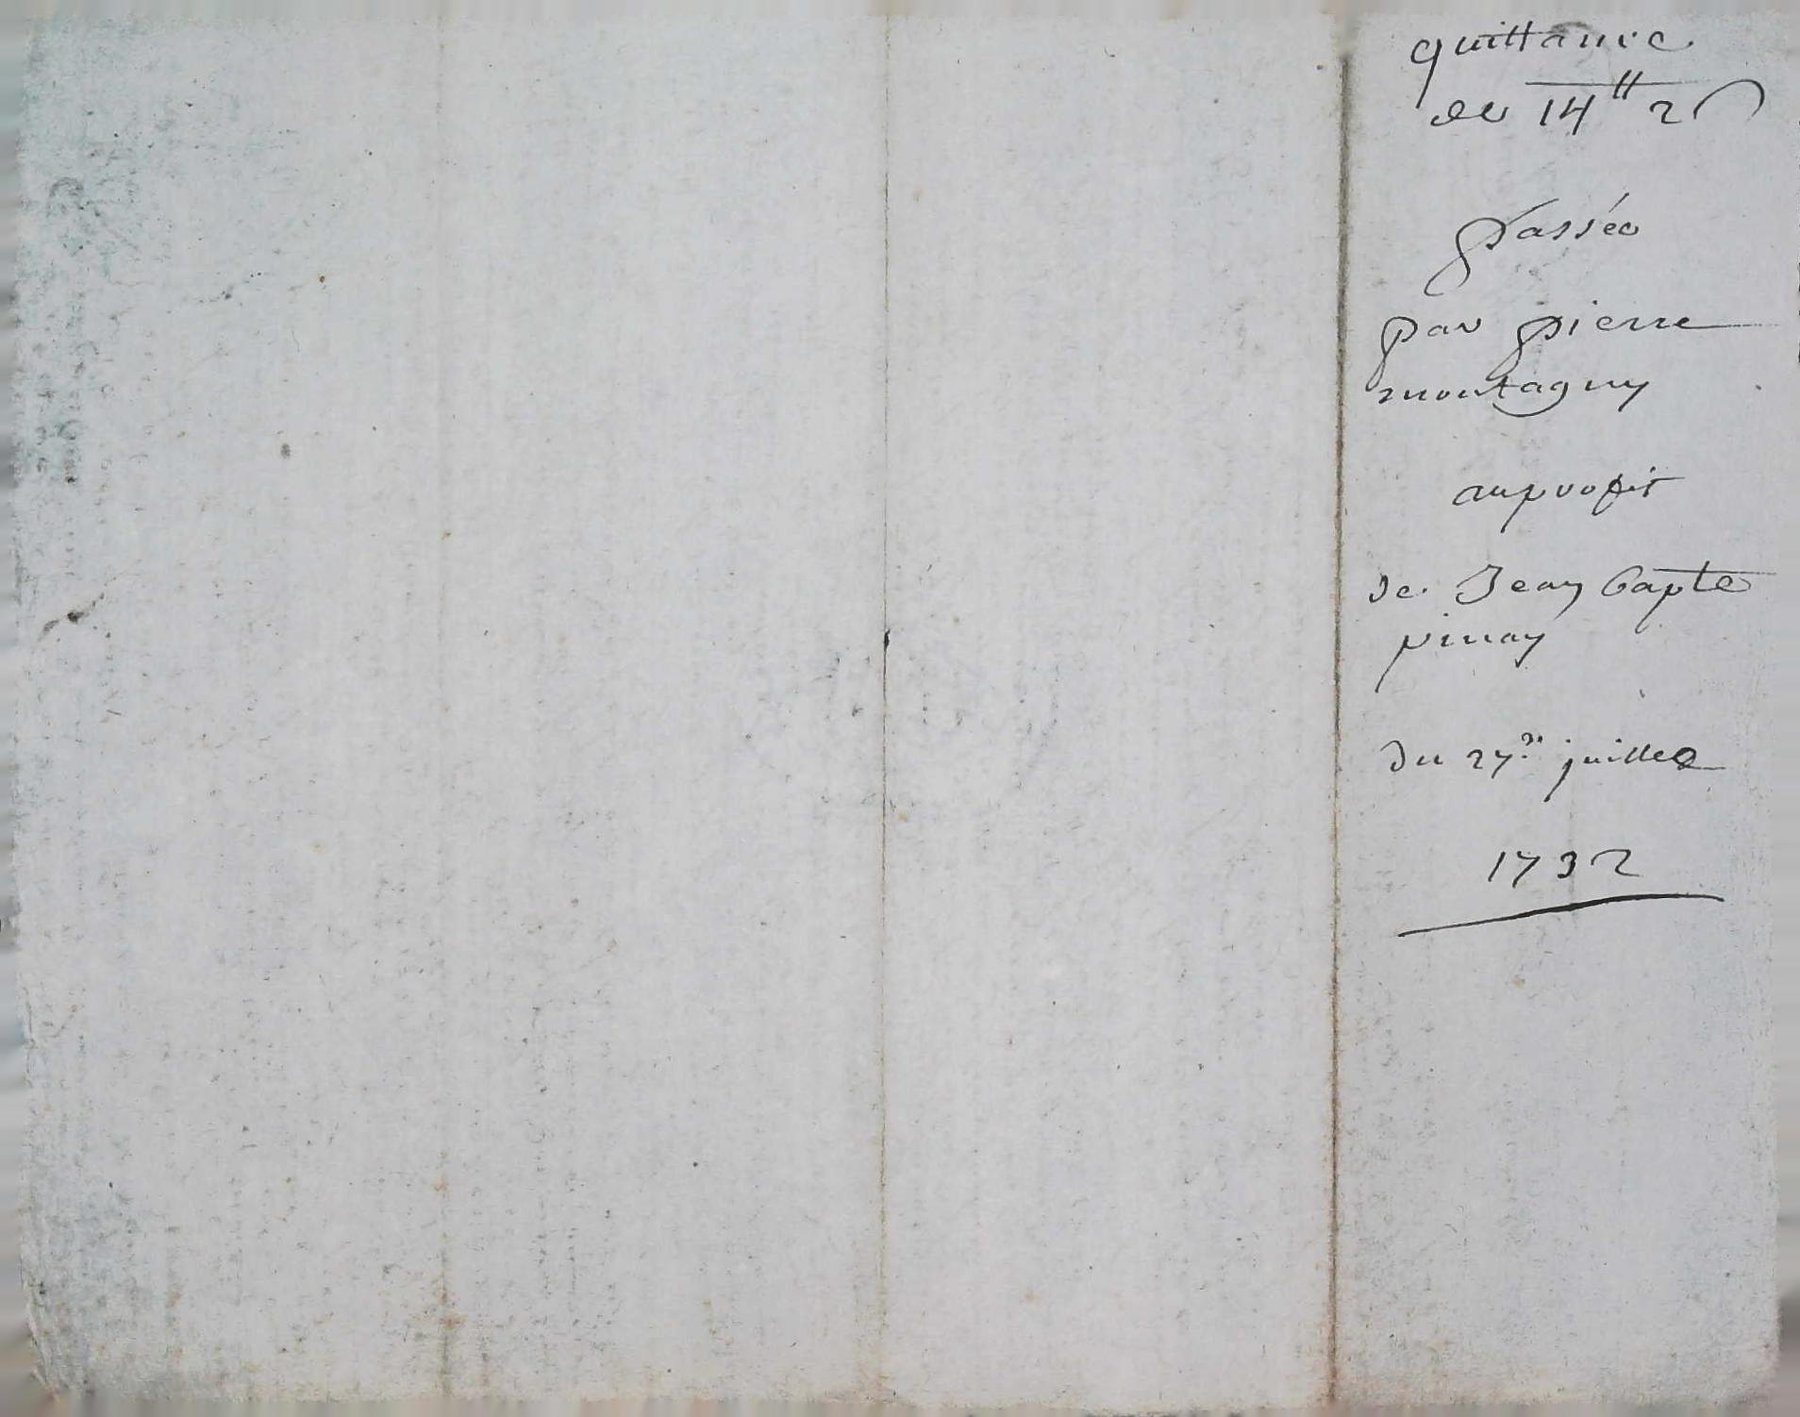 quittance
de 14ᵗᵗ 2ſ
passée
par pierre
montagny
au profit
de Jean bapte
pinay
du 27ᵉ juillet
1732